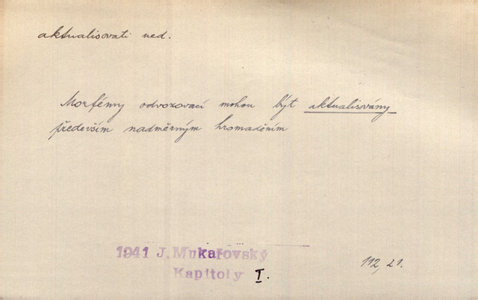 aktualisovati ned.
Morfémy odvozovací mohou být aktualisovány
především nadměrným hromaděním
1941 J. Mukařovský
Kapitoly I.
112, 21.